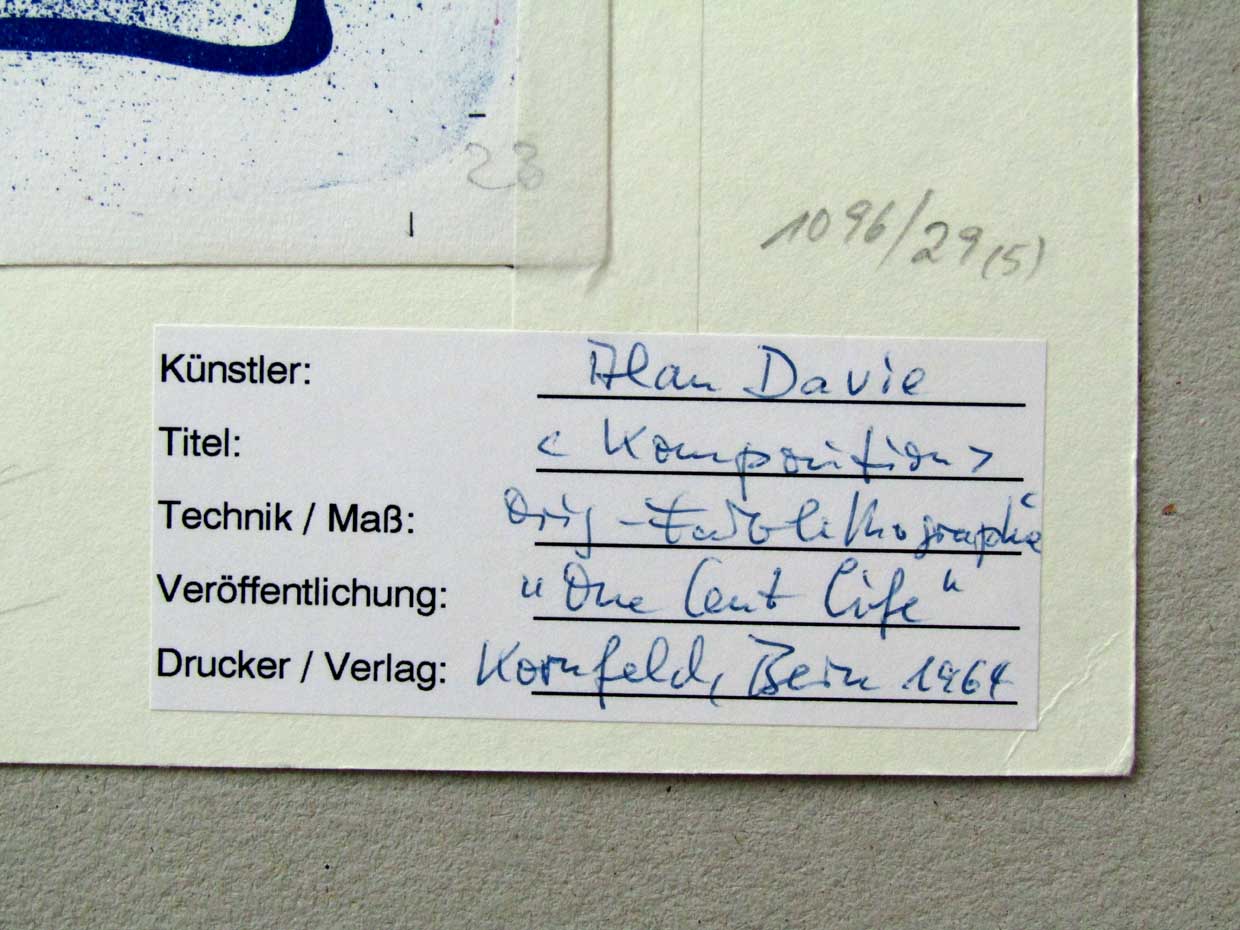 23
1096/29(5)
Künstler: Alan Davie
Titel: < Komposition >
Technik / Maß: Orig-Farblithographie
Veröffentlichung: "One Cent Life"
Drucker / Verlag: Kornfeld, Bern 1964